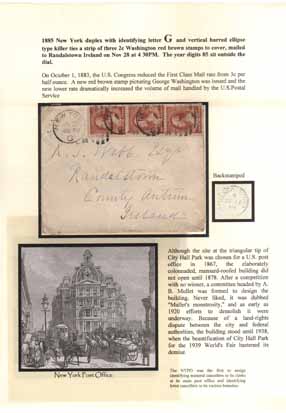 1885 New York duplex with identifying letter G and vertical barred ellipse
type killer ties a strip of three 2c Washington red brown stamps to cover, mailed
to Randalstown Ireland on Nov 28 at 4 30PM. The year digits 85 sit outside the
dial.
On October 1, 1883, the U.S. Congress reduced the First Class Mail rate from 3c per
half ounce. A new red brown stamp picturing George Washington was issued and
the new lower rate dramatically increased the volume of mail handled by the U.S.Postal
Service
R. J. Webb Esqr
Randalstown
County Antrim
Ireland
Backstamped
Although the site at the triangular tip of
City Hall Park was chosen for a U.S. post
office in 1867, the elaborately
colonnaded, mansard-roofed building did
not open until 1878. After a competition
with no winner, a committee headed by A.
B. Mullet was formed to design the
building. Never liked, it was dubbed
"Mullet's monstrosity," and as early as
1920 efforts to demolish it were
underway. Because of a land-rights
dispute between the city and federal
authorities, the building stood until 1938,
when the beautification of City Hall Park
for the 1939 World's Fair hastened its
demise
New York Post Office
The NYPO was the first to assign
identifying numeral cancellers to its clerks
at its main post office and identifying
letter cancellers to its various branches